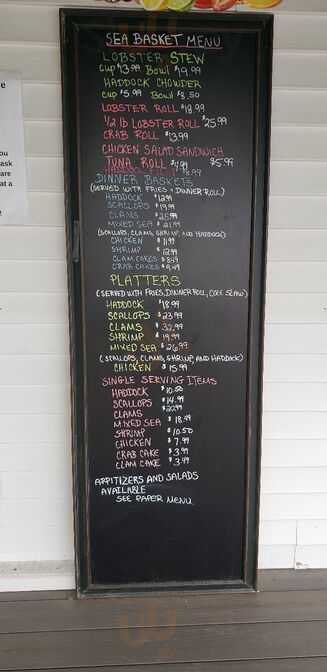 SEA BASKET MENU
LOBSTER STEW
Cup $13.99 Bowl $19.99
HADDOCK CHOWDER
Cup $5.99 Bowl $8.50
LOBSTER ROLL $18.99
1/2 lb LOBSTER ROLL $25.99
CRAB ROLL $13.99
CHICKEN SALAD SANDWICH $5.99
TUNA ROLL $4.99
HADDOCK
DINNER BASKETS
(SERVED WITH FRIES & DINNER ROLL)
HADDOCK $12.99
SCALLOPS $19.99
CLAMS $25.99
MIXED SEA $21.99
(SCALLOPS, CLAMS, SHRIMP, AND HADDOCK)
CHICKEN $11.99
SHRIMP $12.99
CLAM CAKES $8.49
CRAB CAKES $9.49
PLATTERS
(SERVED WITH FRIES, DINNER ROLL, COLE SLAW)
HADDOCK $18.99
SCALLOPS $23.99
CLAMS $32.99
SHRIMP $19.99
MIXED SEA $26.99
(SCALLOPS, CLAMS, SHRIMP, AND HADDOCK)
CHICKEN $15.99
SINGLE SERVING ITEMS
HADDOCK $10.50
SCALLOPS $14.99
CLAMS $20.99
MIXED SEA $18.99
SHRIMP $10.50
CHICKEN $7.99
CRAB CAKE $3.99
CLAM CAKE $3.49
APPITIZERS AND SALADS
AVAILABLE
SEE PAPER MENU